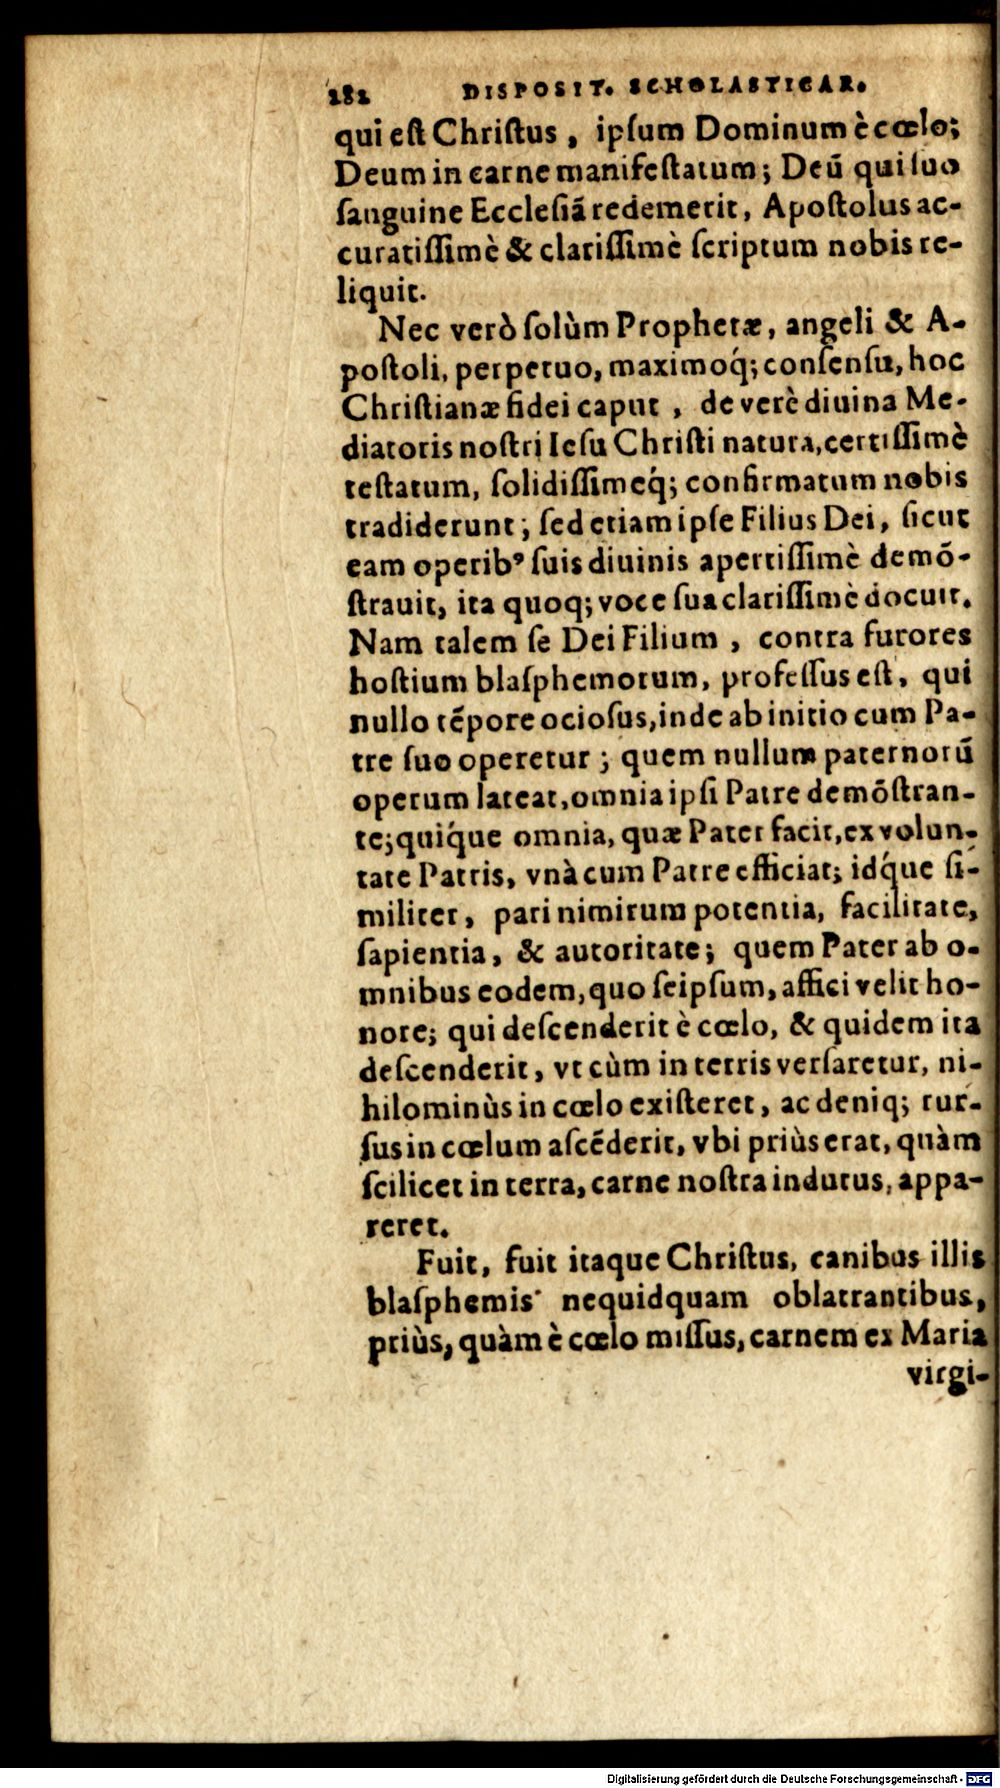 282 DISPOSIT. SCHOLASTICAR.
qui eſt Chriſtus, ipſum Dominum è cœlo;
Deum in carne manifeſtatum; Deū qui ſuo
ſanguine Eccleſiā redemerit, Apoſtolus ac-
curatiſſimè & clariſſimè ſcriptum nobis re-
liquit.
Nec verò ſolùm Prophetæ, angeli & A-
poſtoli, perpetuo, maximoq́; conſenſu, hoc
Chriſtianæ fidei caput, de verè diuina Me-
diatoris noſtri Ieſu Chriſti natura, certiſſimè
teſtatum, ſolidiſſimeq́; confirmatum nobis
tradiderunt; ſed etiam ipſe Filius Dei, ſicut
eam operibꝰ ſuis diuinis apertiſſimè demō-
ſtrauit, ita quoq; voce ſua clariſſimè docuit.
Nam talem ſe Dei Filium, contra furores
hoſtium blaſphemorum, profeſſus eſt, qui
nullo tēpore ocioſus, inde ab initio cum Pa-
tre ſuo operetur; quem nullum paternorū
operum lateat, omnia ipſi Patre demōſtran-
te; quiq́ue omnia, quæ Pater facit, ex volun-
tate Patris, vnà cum Patre efficiat; idq́ue ſi-
militer, pari nimirum potentia, facilitate,
ſapientia, & autoritate; quem Pater ab o-
mnibus eodem, quo ſeipſum, affici velit ho-
nore; qui deſcenderit è cœlo, & quidem ita
deſcenderit, vt cùm in terris verſaretur, ni-
hilominùs in cœlo exiſteret, ac deniq; rur-
ſus in cœlum aſcēderit, vbi priùs erat, quàm
ſcilicet in terra, carne noſtra indutus, appa-
reret.
Fuit, fuit itaque Chriſtus, canibus illis
blaſphemis nequidquam oblatrantibus,
priùs, quàm è cœlo miſſus, carnem ex Maria
virgi-
Digitalisierung gefördert durch die Deutsche Forschungsgemeinschaft - DFG